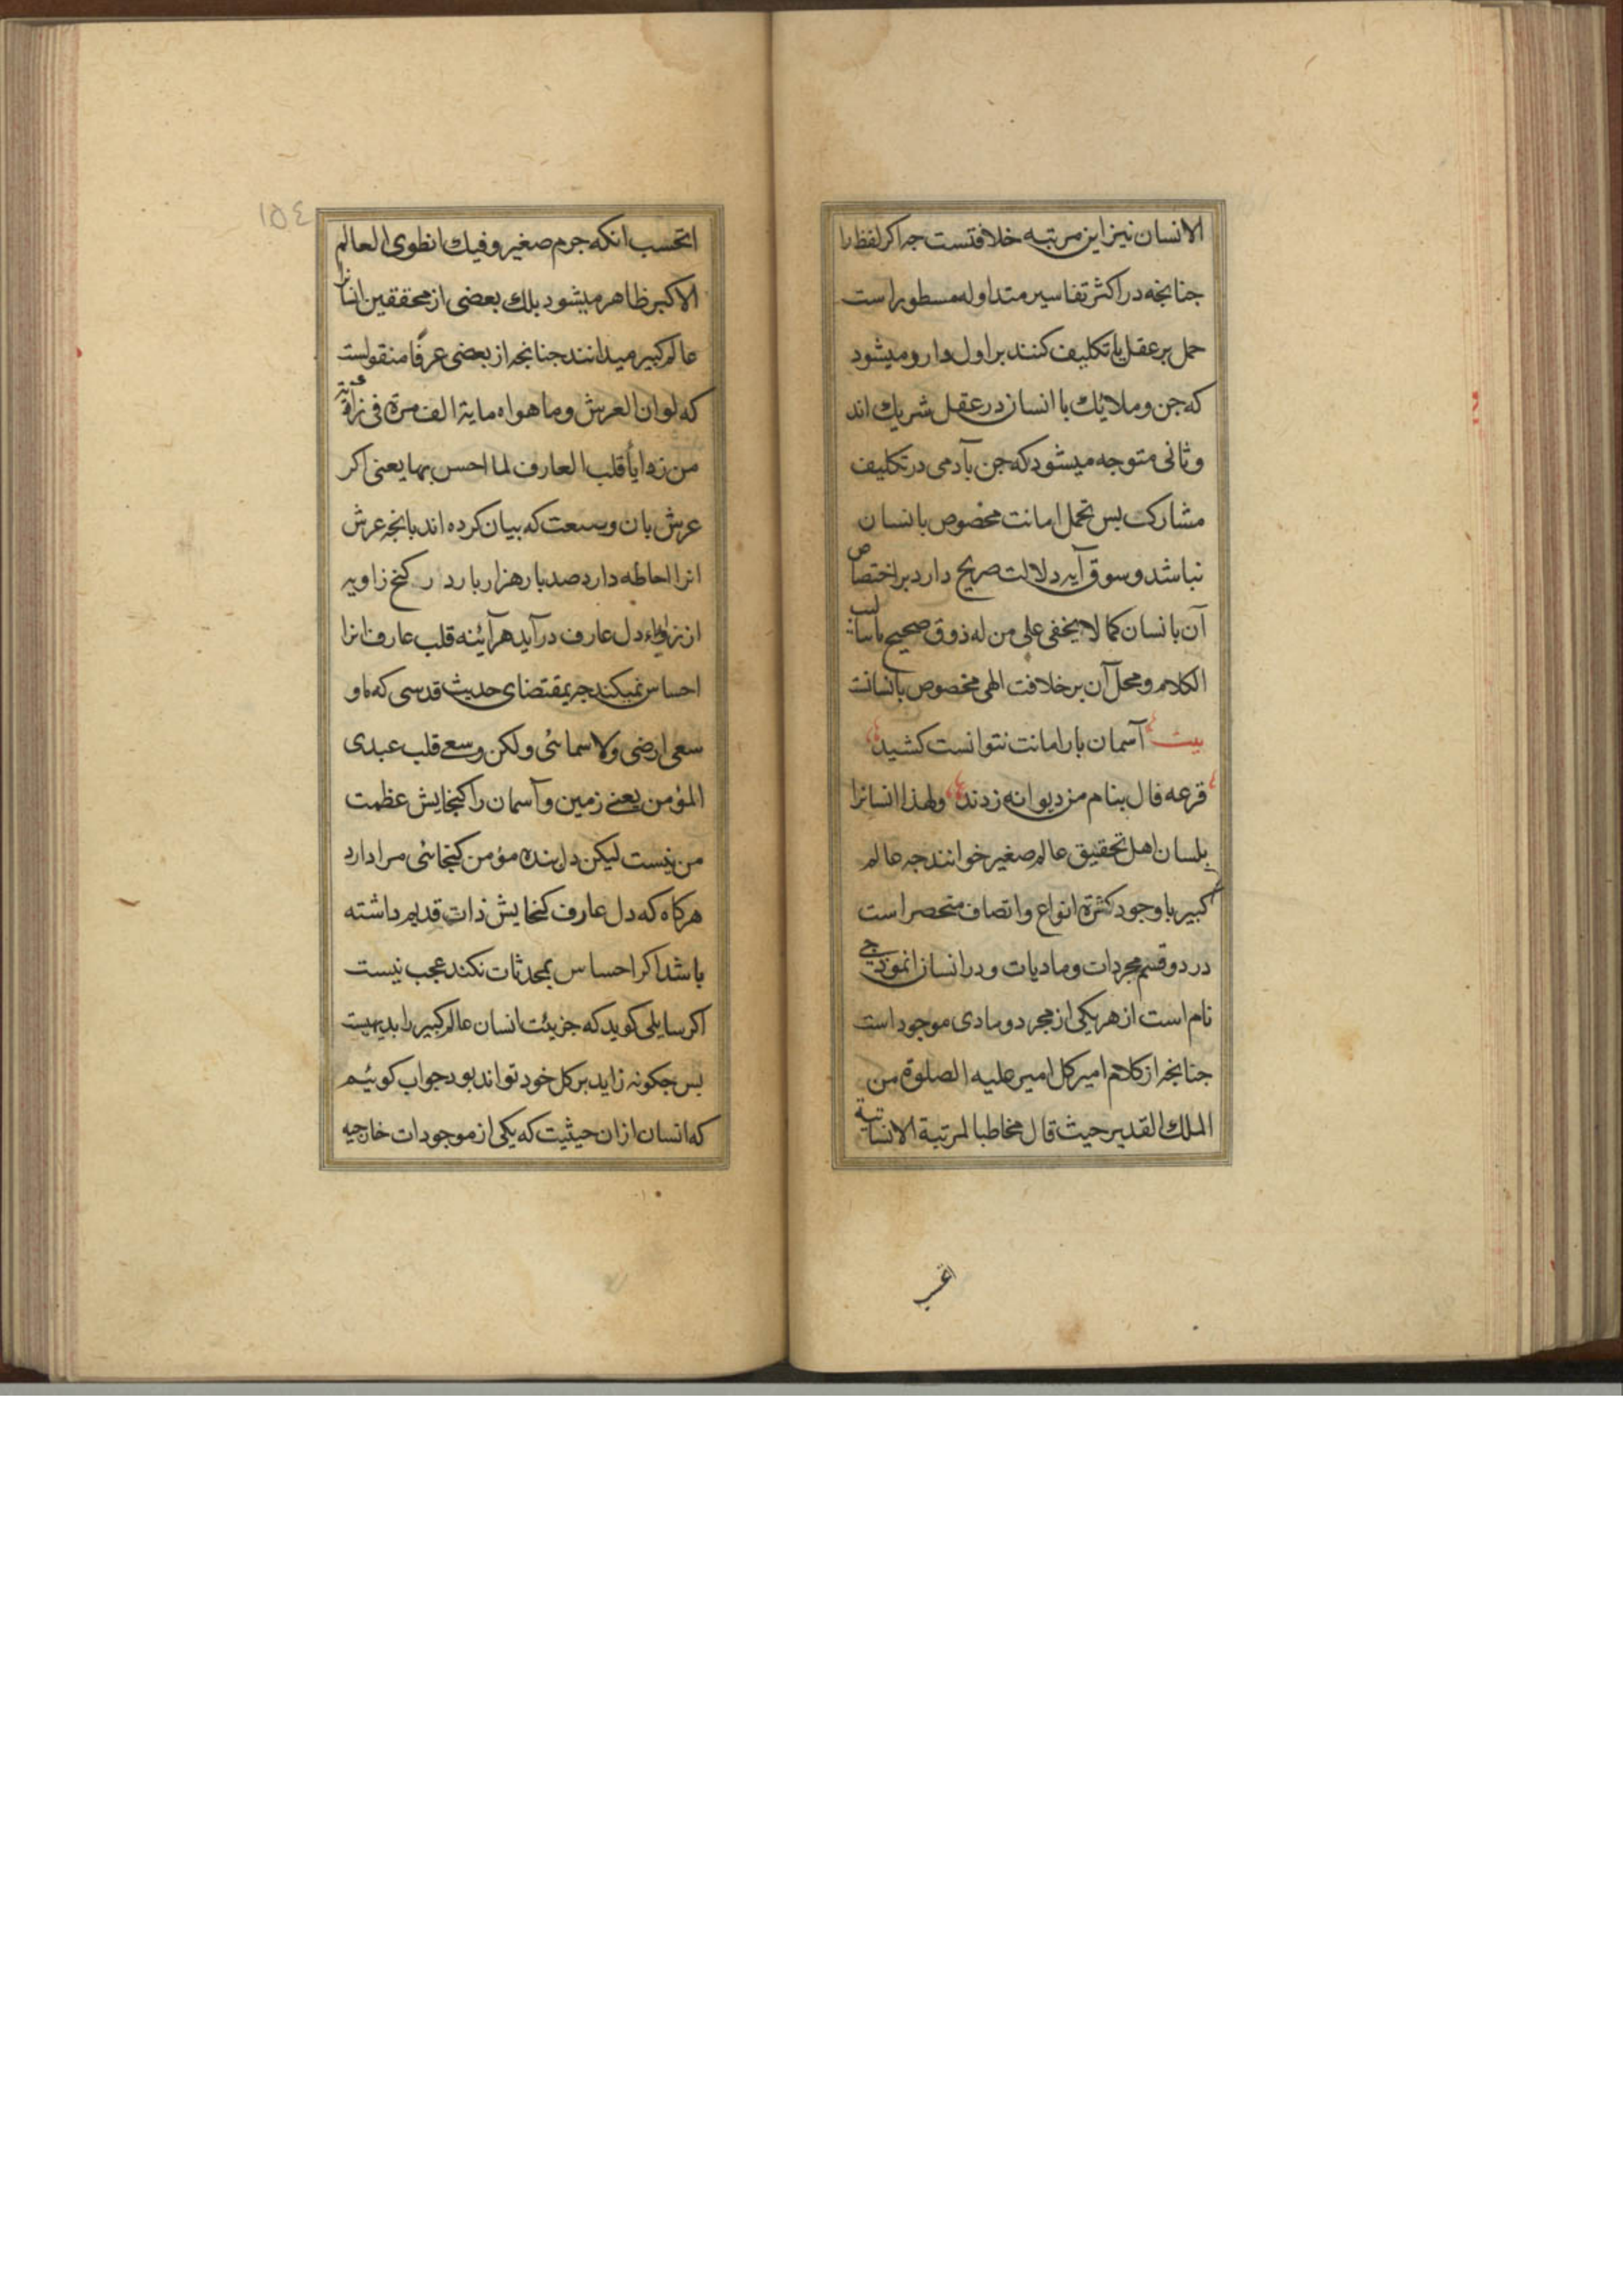 الانسان نیز این مرتبه خلافتست جه اکر لفظ را
جنانجه در اکثر تفاسیر متداوله مسطور است
حمل بر عقل یا تکلیف کنند بر اول وارد میشود
که جن و ملائك با انسان در عقل شریك اند
و ثانی متوجه میشود که جن بآدمی در تکلیف
مشارکت بس تحمل امانت مخصوص بانسان
نباشد و سوق آیه دلالت صریح دارد بر اختصاص
آن بانسان کما لا یخفی علی من له ذوق صحیح باسالیب
الکلام و محل آن بر خلافت الهی مخصوص بانسانت
بیت آسمان بار امانت نتوانست کشید
قرعه فال بنام من دیوانه زدند ولهذا انسانرا
بلسان اهل تحقیق عالم صغیر خوانند جه عالم
کبیر با وجود کثرة انواع و اتصاف منحصر است
در دو قسم مجردات و مادیات و در انسان انموذجی
تام است از هر یکی از مجرد و مادی موجود است
جنانجه از کلام امیر کل امیر علیه الصلوة من
الملك القدیر حیث قال مخاطبا لمرتبة الانسانیة
١٥٤
اتحسب انکه جرم صغیر و فیك انطوی العالم
الاکبر ظاهر میشود بلك بعضی از محققین انسانرا
عالم کبیر میدانند جنانجه از بعضی عرفا منقولست
که لو ان العرش و ما هواه مایة الف مرة فی زاویة
من زوایا قلب العارف لما احس بها یعنی اکر
عرش بان وسعت که بیان کرده اند بانجه عرش
انرا احاطه دارد صد بار هزار بار در کنج زاویه
از زوایاء دل عارف در آید هر آئنه قلب عارف انرا
احساس نمیکند جه بمقتضای حدیث قدسی که ما و
سعی ارضی ولا سمائی ولکن وسعی قلب عبدی
المؤمن یعنی زمین و آسمان را کنجایش عظمت
من نیست لیکن دل بنده مؤمن کنجائی مرا دارد
هرکاه که دل عارف کنجایش ذات قدیم داشته
باشد اکر احساس بمحدثات نکند عجب نیست
اکر سایلی کوید که جزیئت انسان عالم کبیر را بدیهیست
بس جکونه زاید بر کل خود تواند بود جواب کوئیم
که انسان از ان حیثیت که یکی از موجودات خارجیه